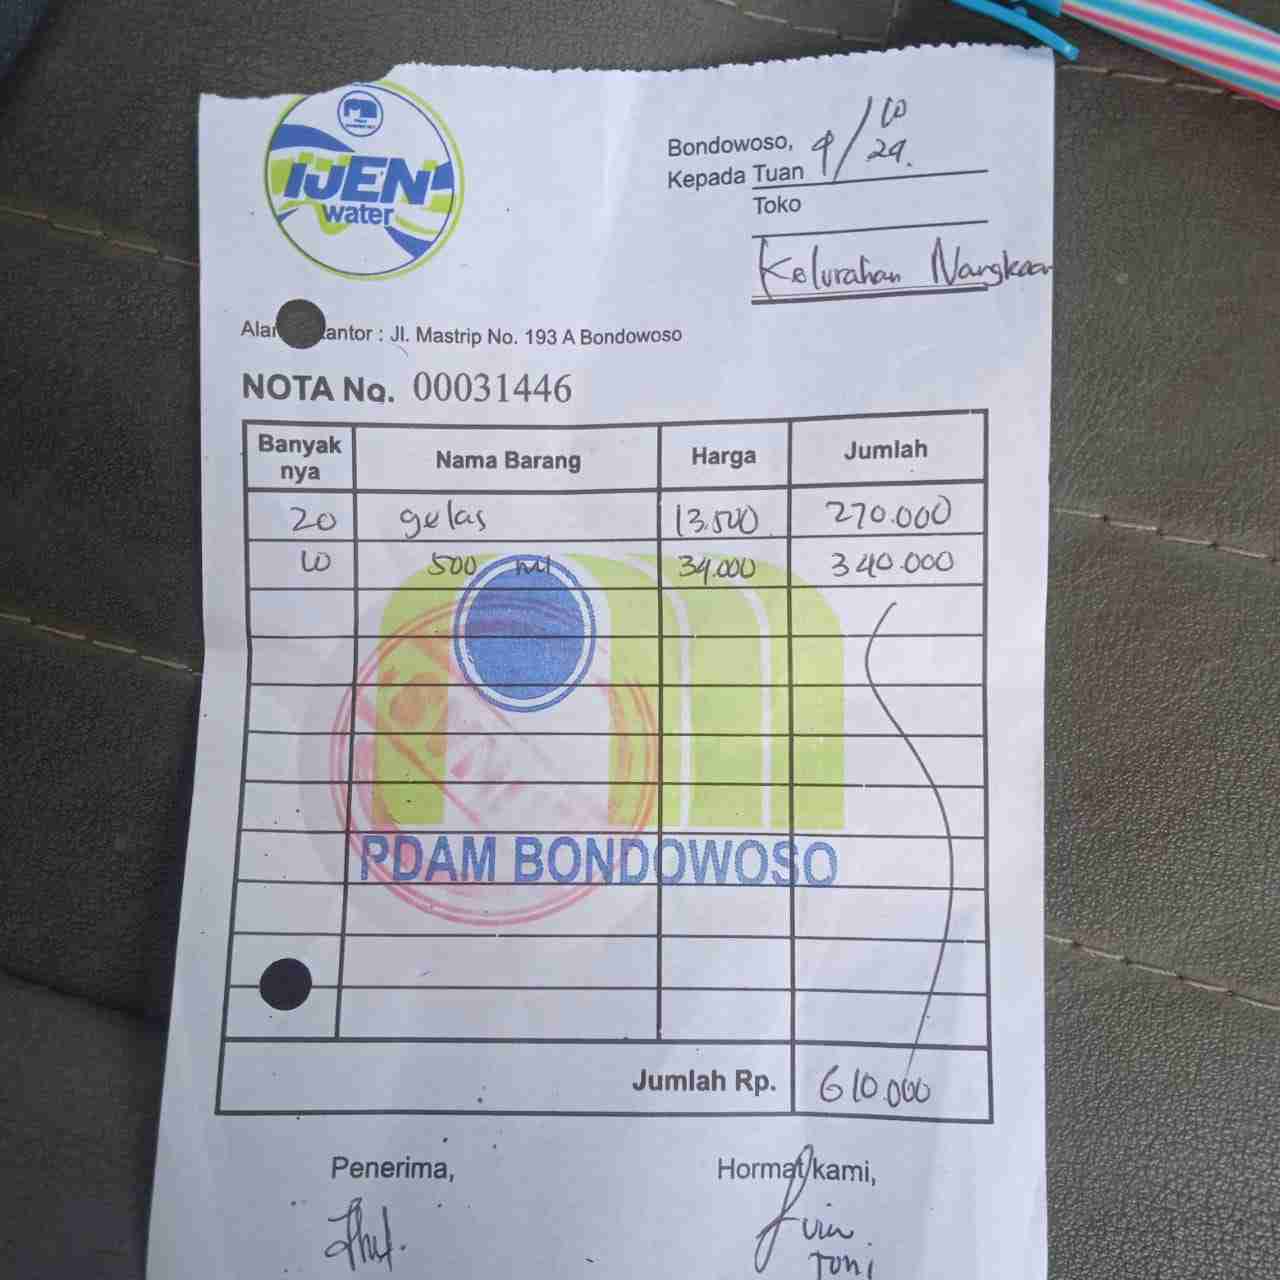 IJEN
water
Bondowoso, 9/10 24.
Kepada Tuan
Toko
Kelurahan Nangkaan
Kantor : Jl. Mastrip No. 193 A Bondowoso
NOTA No. 00031446
Banyak nya Nama Barang Harga Jumlah
20 gelas 13.500 270.000
10 500 ml 34.000 340.000
PDAM BONDOWOSO
Jumlah Rp. 610.000
Penerima, Hormat kami,
Toni